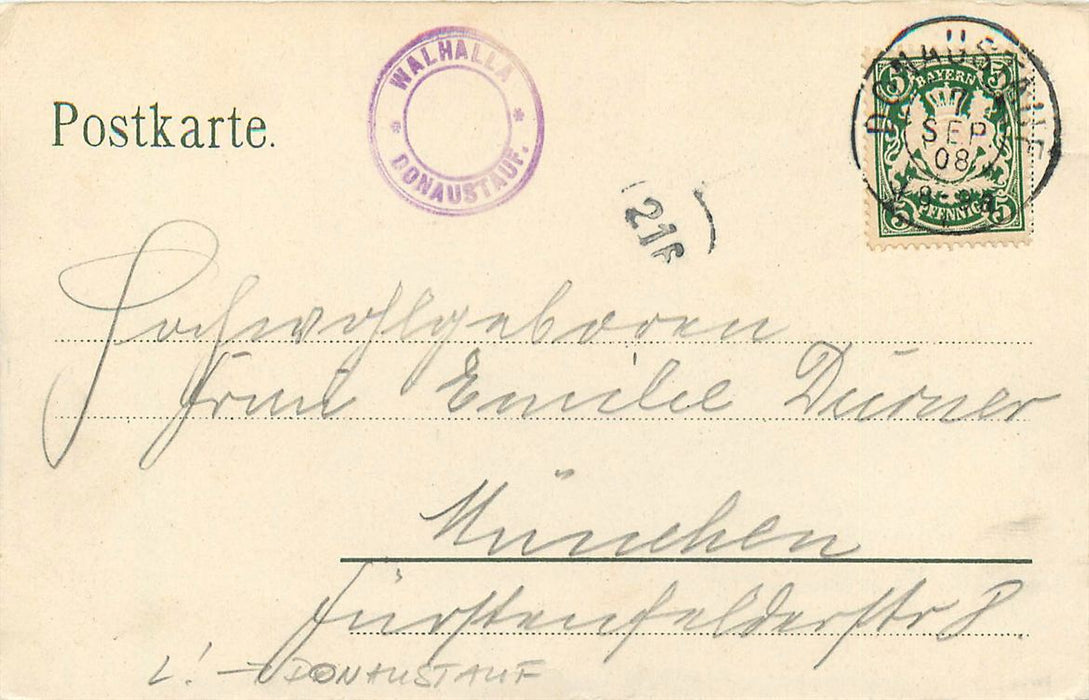 WALHALLA
* *
DONAUSTAUF.
DONAUSTAUF
7
SEP
08
BAYERN
5 5
5 5
PFENNIG
Postkarte.
216
Hochwohlgeboren
Frau Emilie Dürner
München
Fürstenfelderstr 8.
L! → DONAUSTAUF